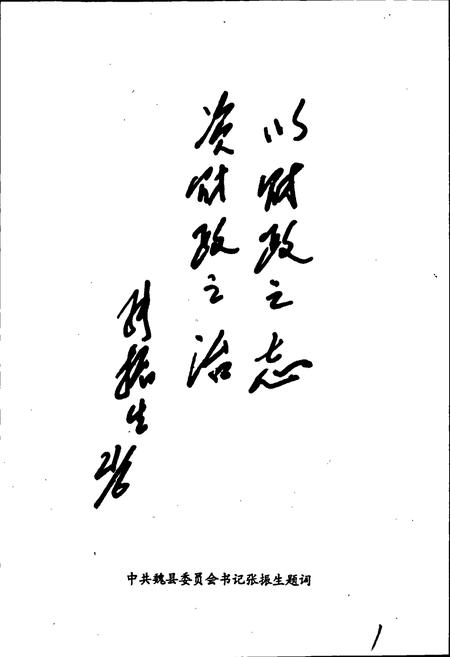 以财政之志
资财政之治
张振生
中共魏县委员会书记张振生题词
1